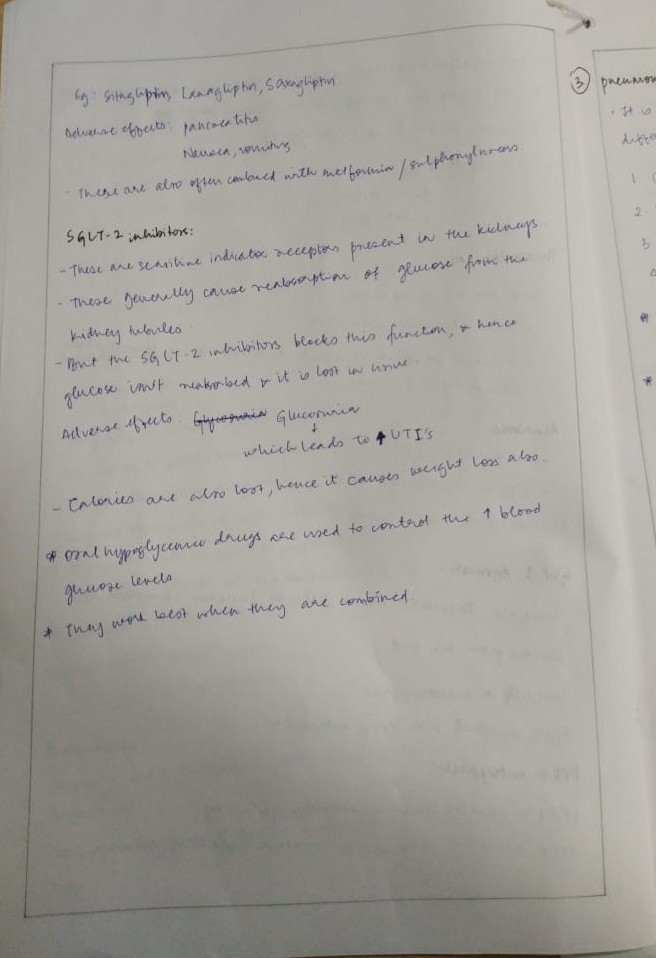 Eg: Sitagliptin, Lanagliptin, Saxagliptin.
Adverse effects: Pancreatitis
Nausea, vomiting
- These are also often combined with metformin / sulphonylureas
SGLT-2 inhibitors:
- These are sensitive indicator receptors present in the kidneys
- These generally cause reabsorption of glucose from the
kidney tubules
- But the SGLT-2 inhibitors blocks this function, & hence
glucose isn't reabsorbed & it is lost in urine.
Adverse effects: Glycosuria Glucosuria
↓
which leads to ↑ UTI's
- Calories are also lost, hence it causes weight loss also.
* Oral hypoglycemic drugs are used to control the ↑ blood
glucose levels
* They work best when they are combined.
③ pneumon
· It is
diffe
1
2
3